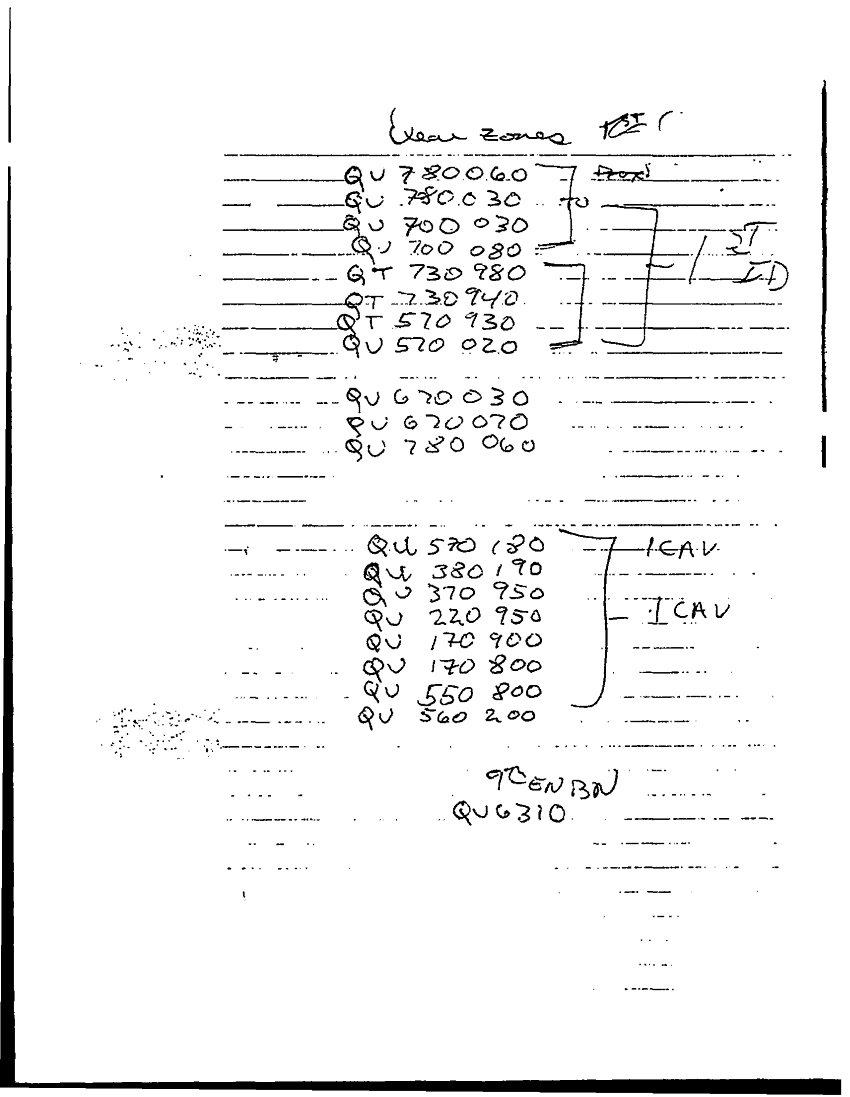 Clear zones 1ST
QU 780 060
QU 780 030 TO
QU 700 030
QU 700 080 1 ST
QT 730 980 ID
QT 730 940
QT 570 930
QU 570 020
QU 670 030
QU 670 070
QU 780 060
QU 570 180 1 CAV
QU 380 190
QU 370 950
QU 220 950 1 CAV
QU 170 900
QU 170 800
QU 550 800
QU 560 200
EN BN
QU 6310